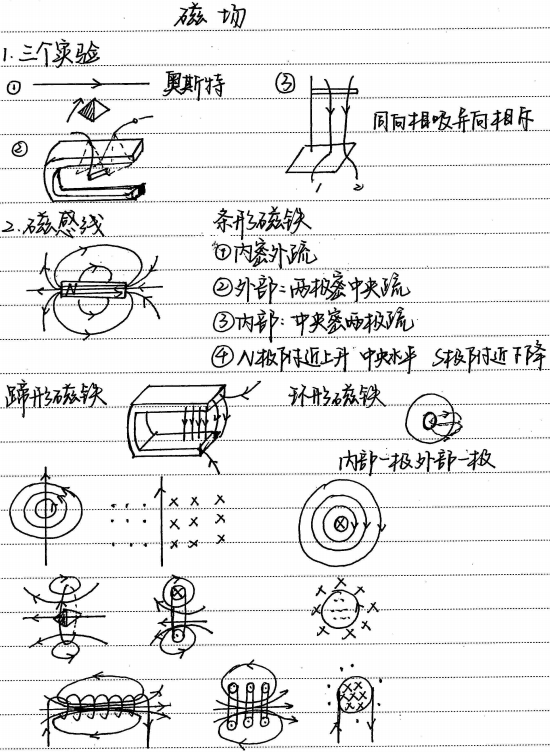 磁场
1.三个实验
① 奥斯特 ③
同向相吸异向相斥
②
1 2
2.磁感线 条形磁铁
N S ①内密外疏
②外部:两极密中央疏
③内部:中央密两极疏
④N极附近上升 中央水平 S极附近下降
蹄形磁铁 环形磁铁
内部一极外部一极